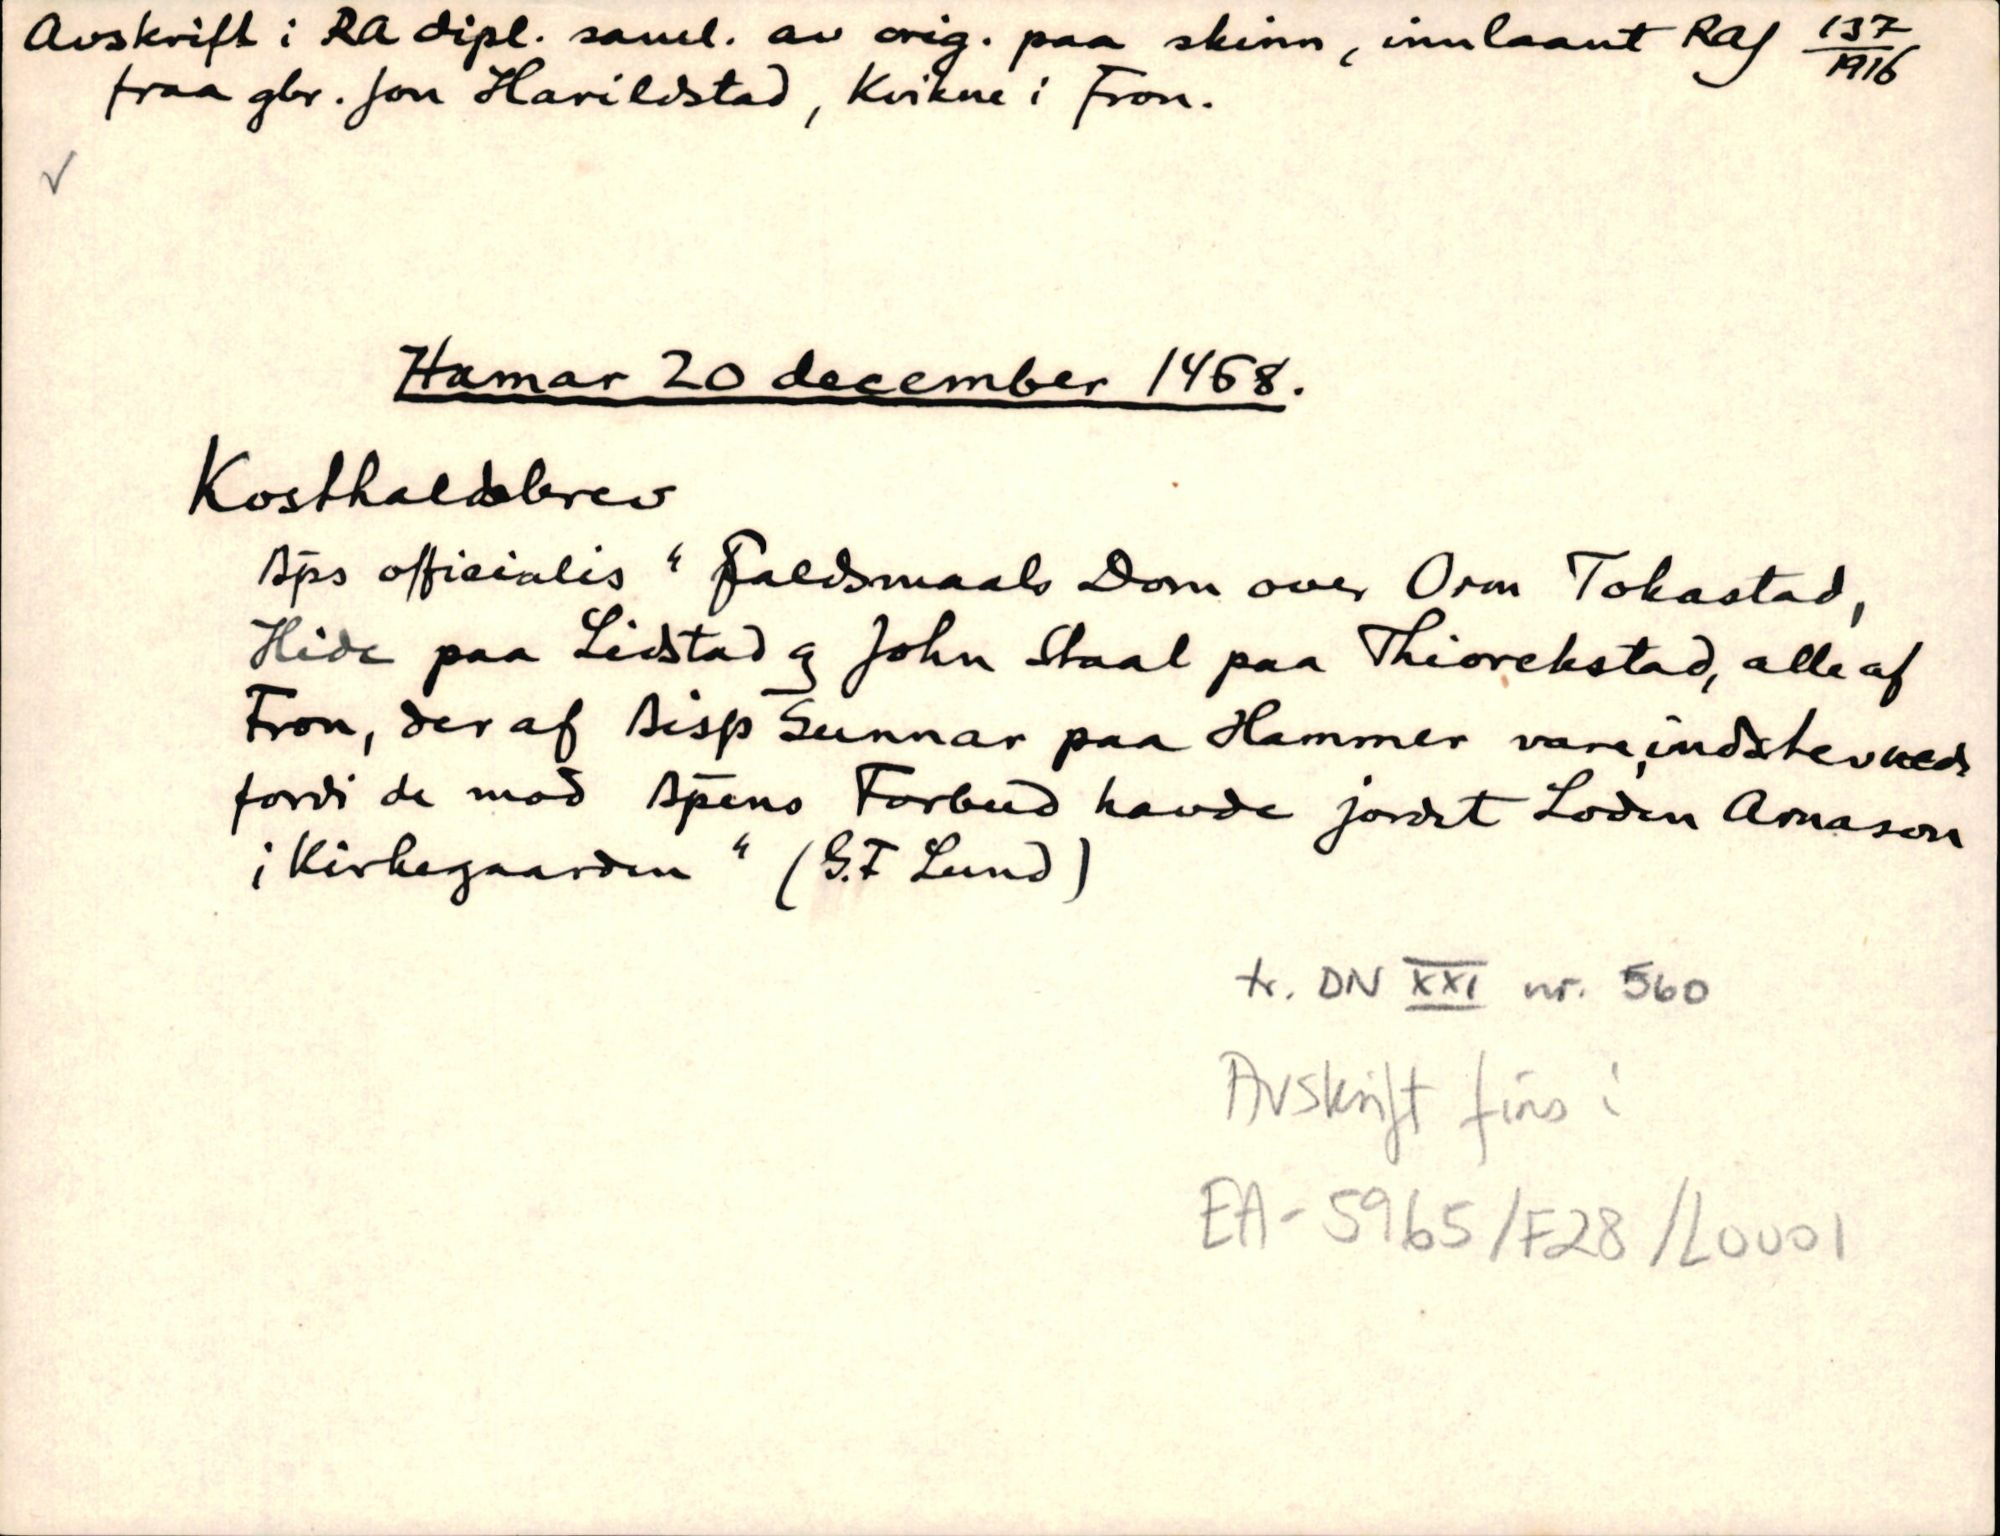 Avskrift i RA dipl. saml. av orig. paa skinn, innlaant RAJ 137/1916
fraa gbr. Jon Harildstad, Kvikne i Fron.
✓
Hamar 20 december 1468.
Kosthaldsbrev
Bps officialis " Faldsmaals Dom over Orm Tokastad,
Hide paa Lidstad og John Staal paa Thiorekstad, alle af
Fron, der af Bisp Gunnar paa Hammer vare indstevneds
fordi de mod Bpens Forbud havde jordet Loden Arnason
i Kirkegaarden " (G.F Lund)
tr. DN XXI nr. 560
Avskrift fins i
EA-5965/F28/L0001